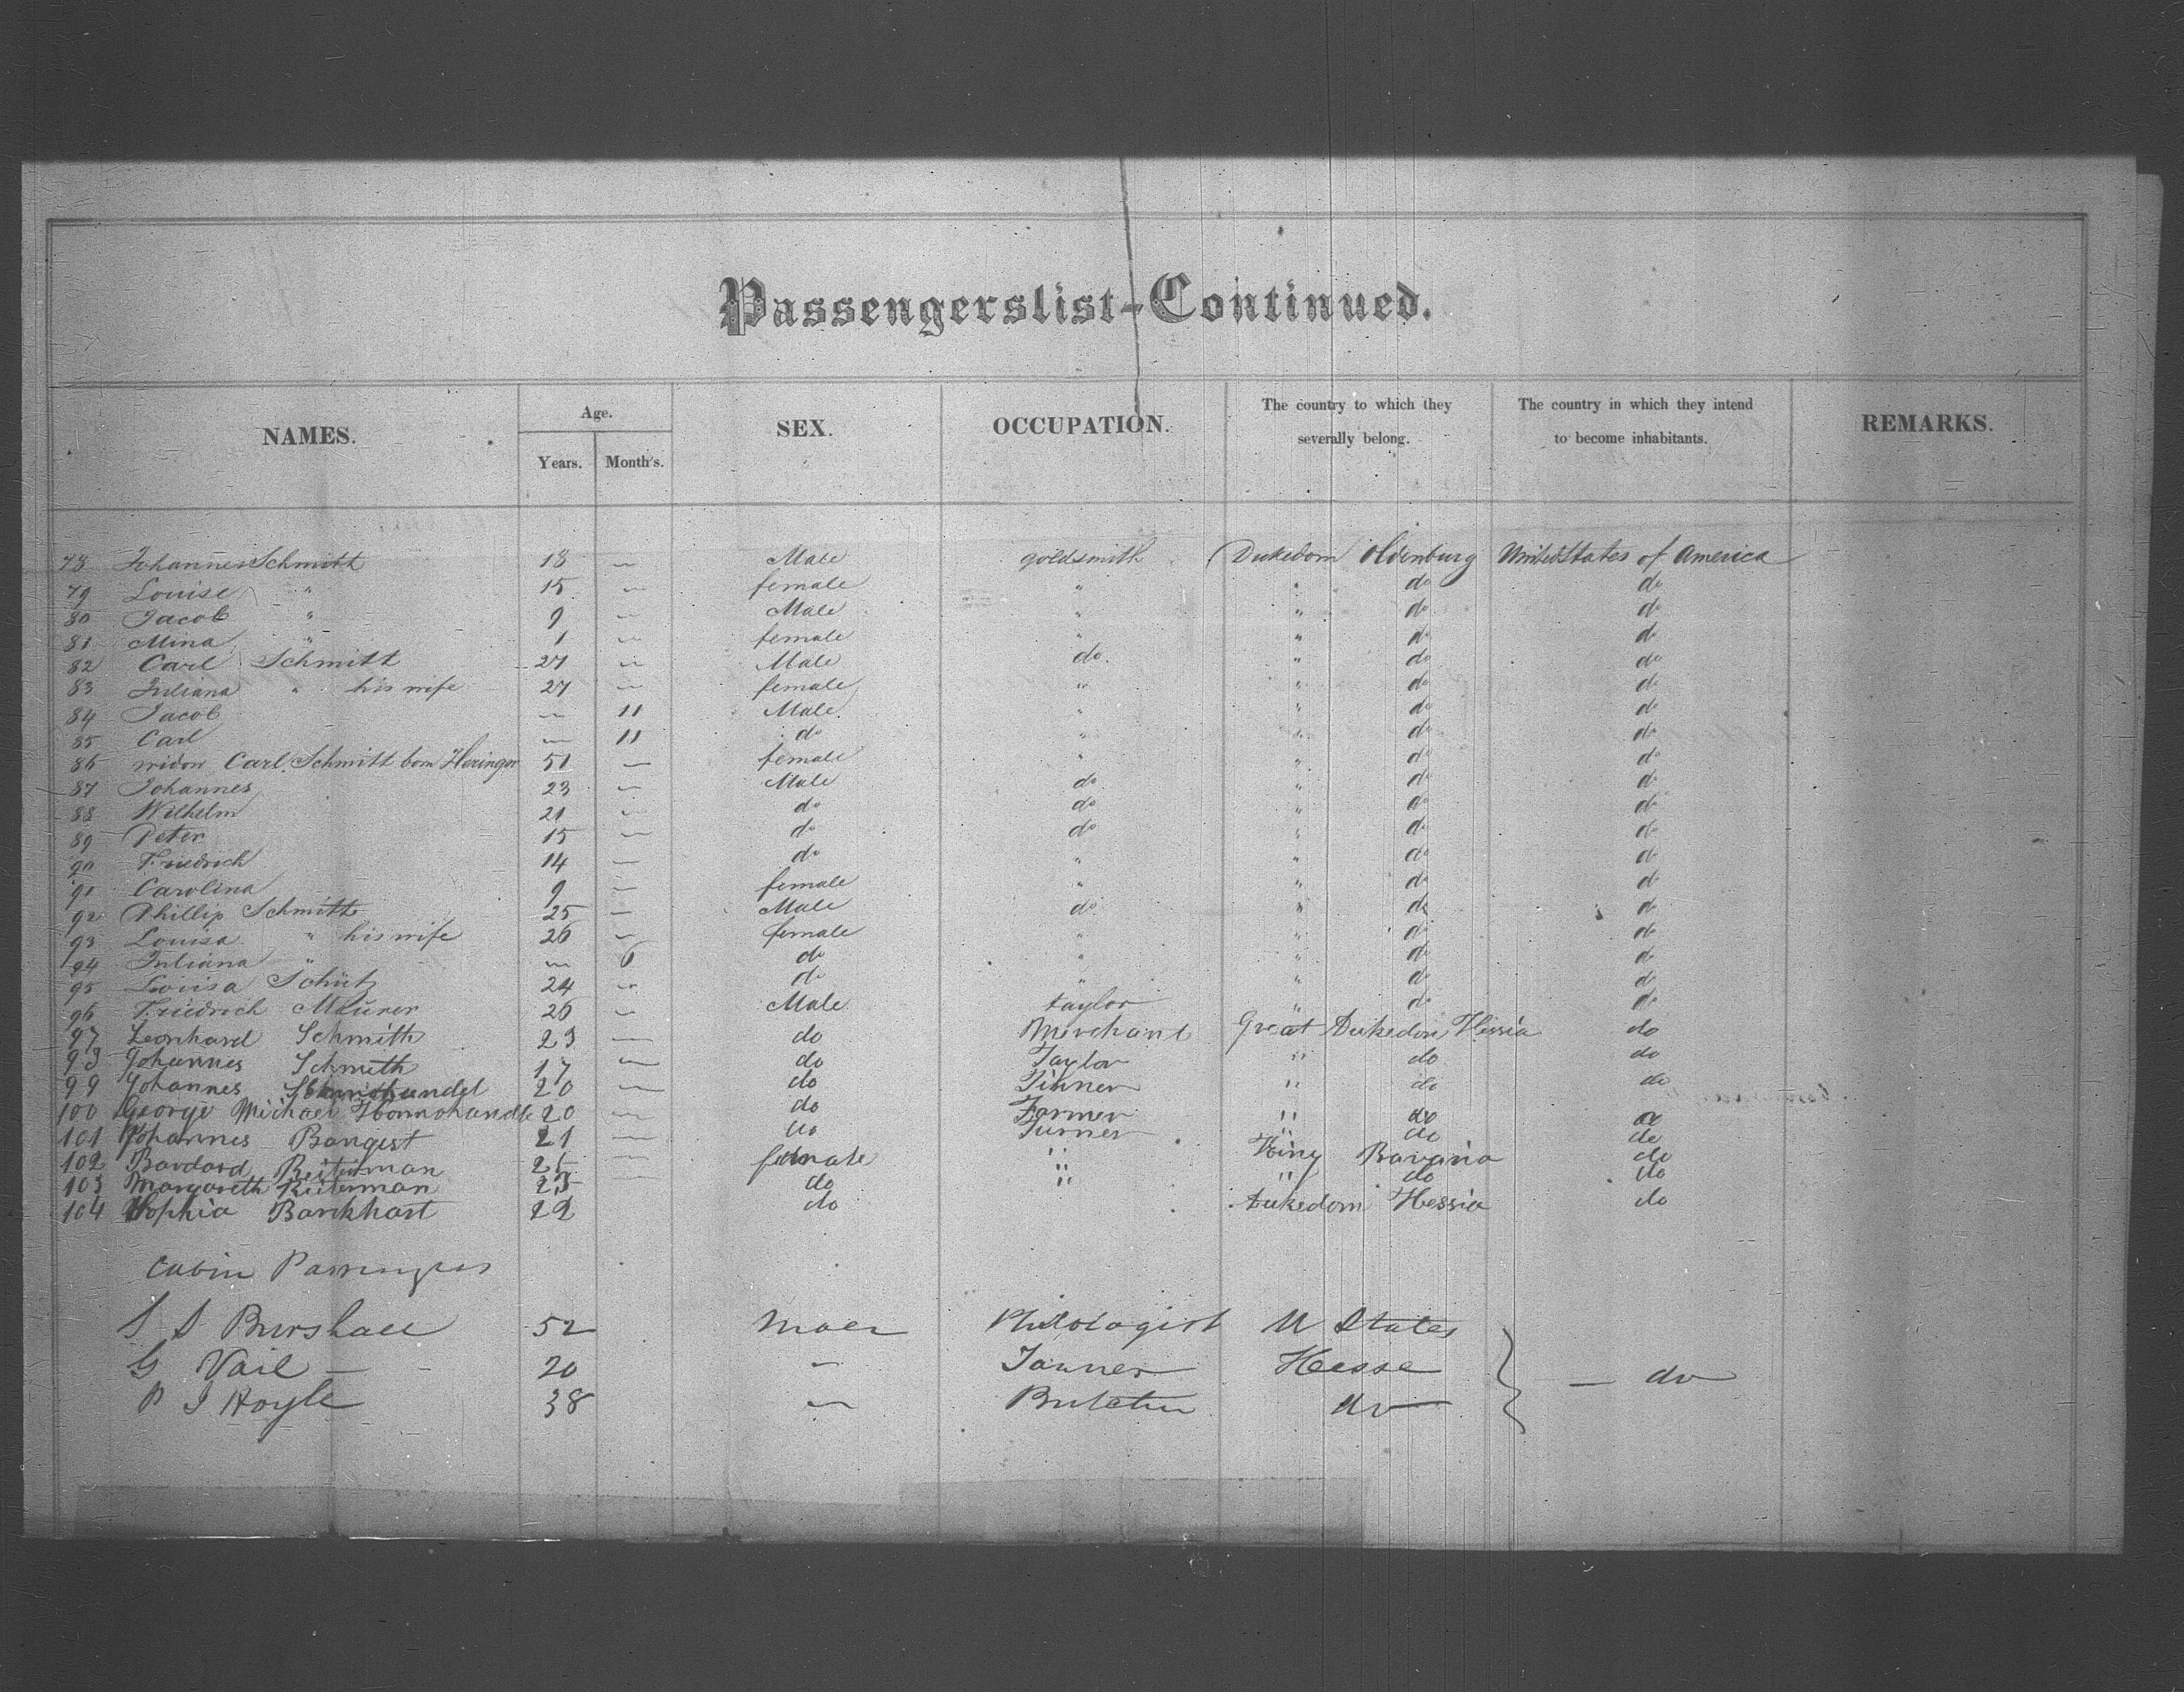 Passengerslist-Continued.
NAMES. Age. Years. Month's. SEX. OCCUPATION. The country to which they severally belong. The country in which they intend to become inhabitants. REMARKS.
78 Johannes Schmitt 18 — Male goldsmith Dukedom Oldenburg United States of America
79 Louise " 15 — female " " do do
80 Jacob " 9 — Male " " do do
81 Mina " 1 — female " " do do
82 Carl Schmitt 27 — Male do. " do do
83 Juliana " his wife 27 — female " " do do
84 Jacob — 11 Male " " do do
85 Carl — 11 do " " do do
86 widow Carl Schmitt born 51 — female " " do do
87 Johannes 23 — Male do " do do
88 Wilhelm 21 — do do " do do
89 Peter 15 — do do " do do
90 Friedrich 14 — do " " do do
91 Carolina 9 — female " " do do
92 Phillip Schmitt 25 — Male do " do do
93 Louisa " his wife 26 — female " " do do
94 Juliana " — 6 do " " do do
95 Louisa Schütz 24 — do " " do do
96 Friedrich Maurer 26 — Male taylor " do do
97 Leonhard Schmith 23 — do Merchant Great Dukedom Hessia do
98 Johannes Schmith 17 — do Taylor " do do
99 Johannes 20 — do " do do
100 George Michael 20 — do Farmer " do do
101 Johannes 21 — do " do do
102 — female " King Bavaria do
103 Margareth Reiterman — do " " do do
104 Sophia Barckhart 22 do Dukedom Hessia do
Cabin Passengers
52 U States
G Vail — 20 — Tanner Hesse — do
P J Hoyle 38 — do